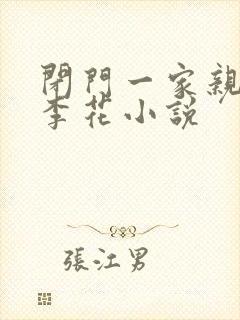 閉門一家親
李花小説
張江男